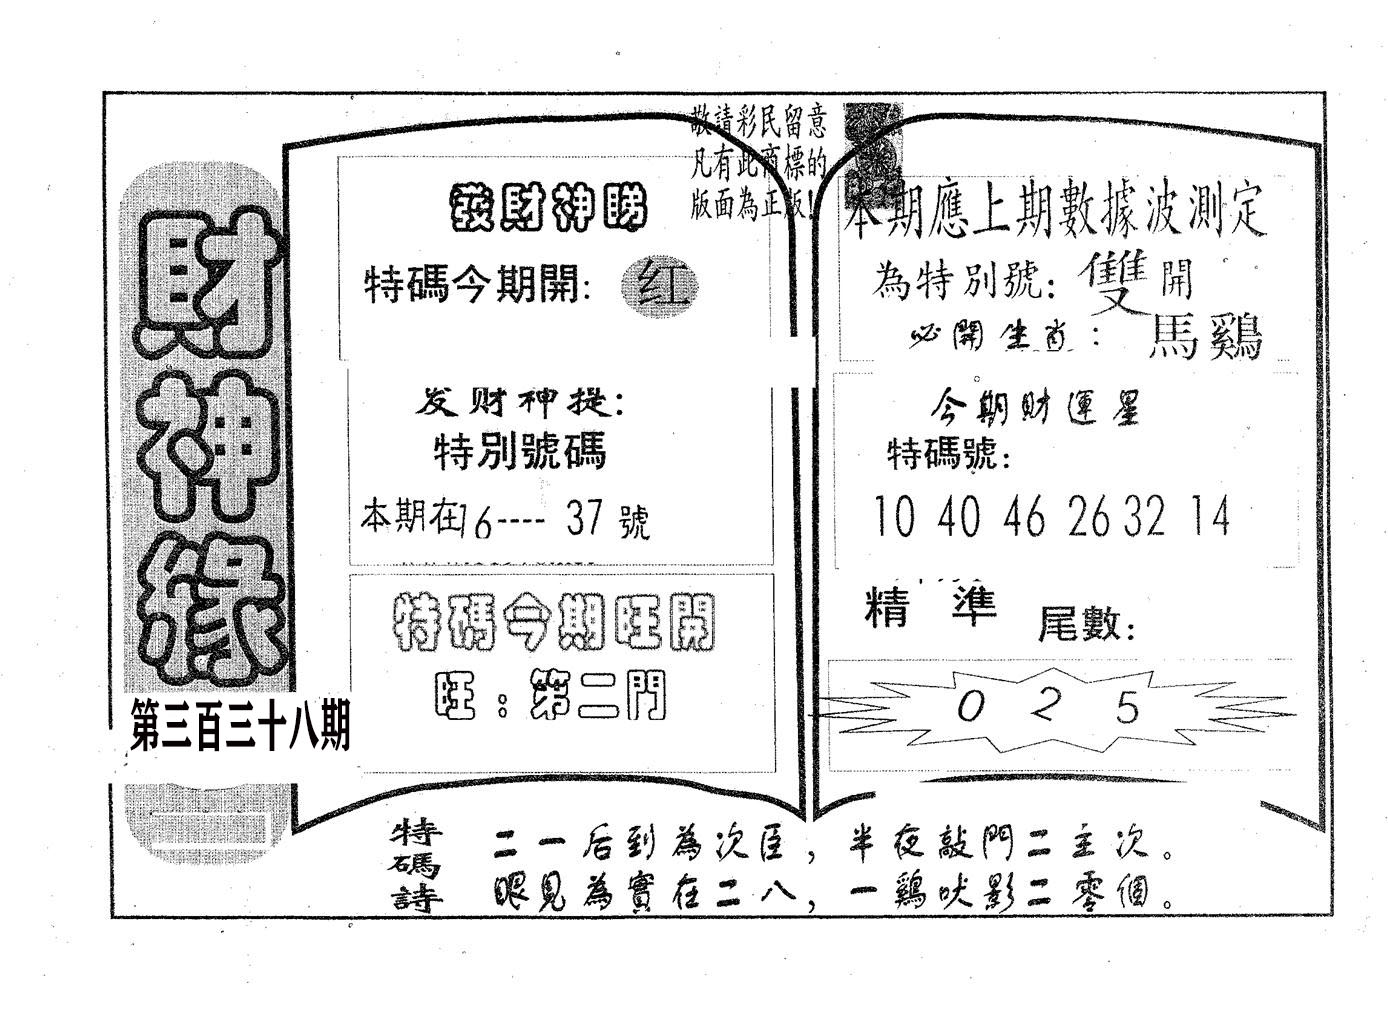 財神緣
第三百三十八期
敬請彩民留意
凡有此商標的
版面為正版!
發財神賜
特碼今期開: 红
发财神提:
特別號碼
本期在16---- 37 號
特碼今期旺開
旺:第二門
本期應上期數據波測定
為特別號: 雙 開
必開生肖: 馬鷄
今期財運星
特碼號:
10 40 46 26 32 14
精準 尾數:
0 2 5
特碼詩
二一后到為次臣,半夜敲門二主次。
眼見為實在二八,一鷄吠影二零個。